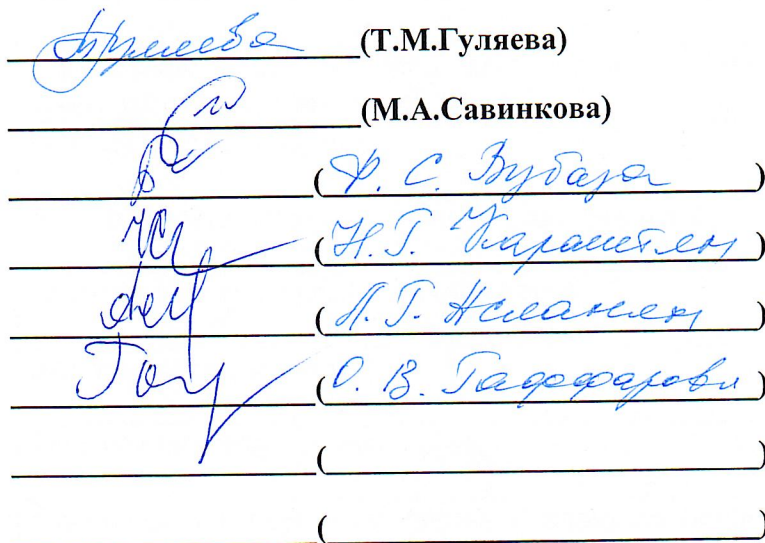 (Т.М.Гуляева)
(М.А.Савинкова)
(Ф. С. Бубаза)
(Н.Г. Карапетян)
(Л. Г. Асланян)
(О. В. Гаффарова)